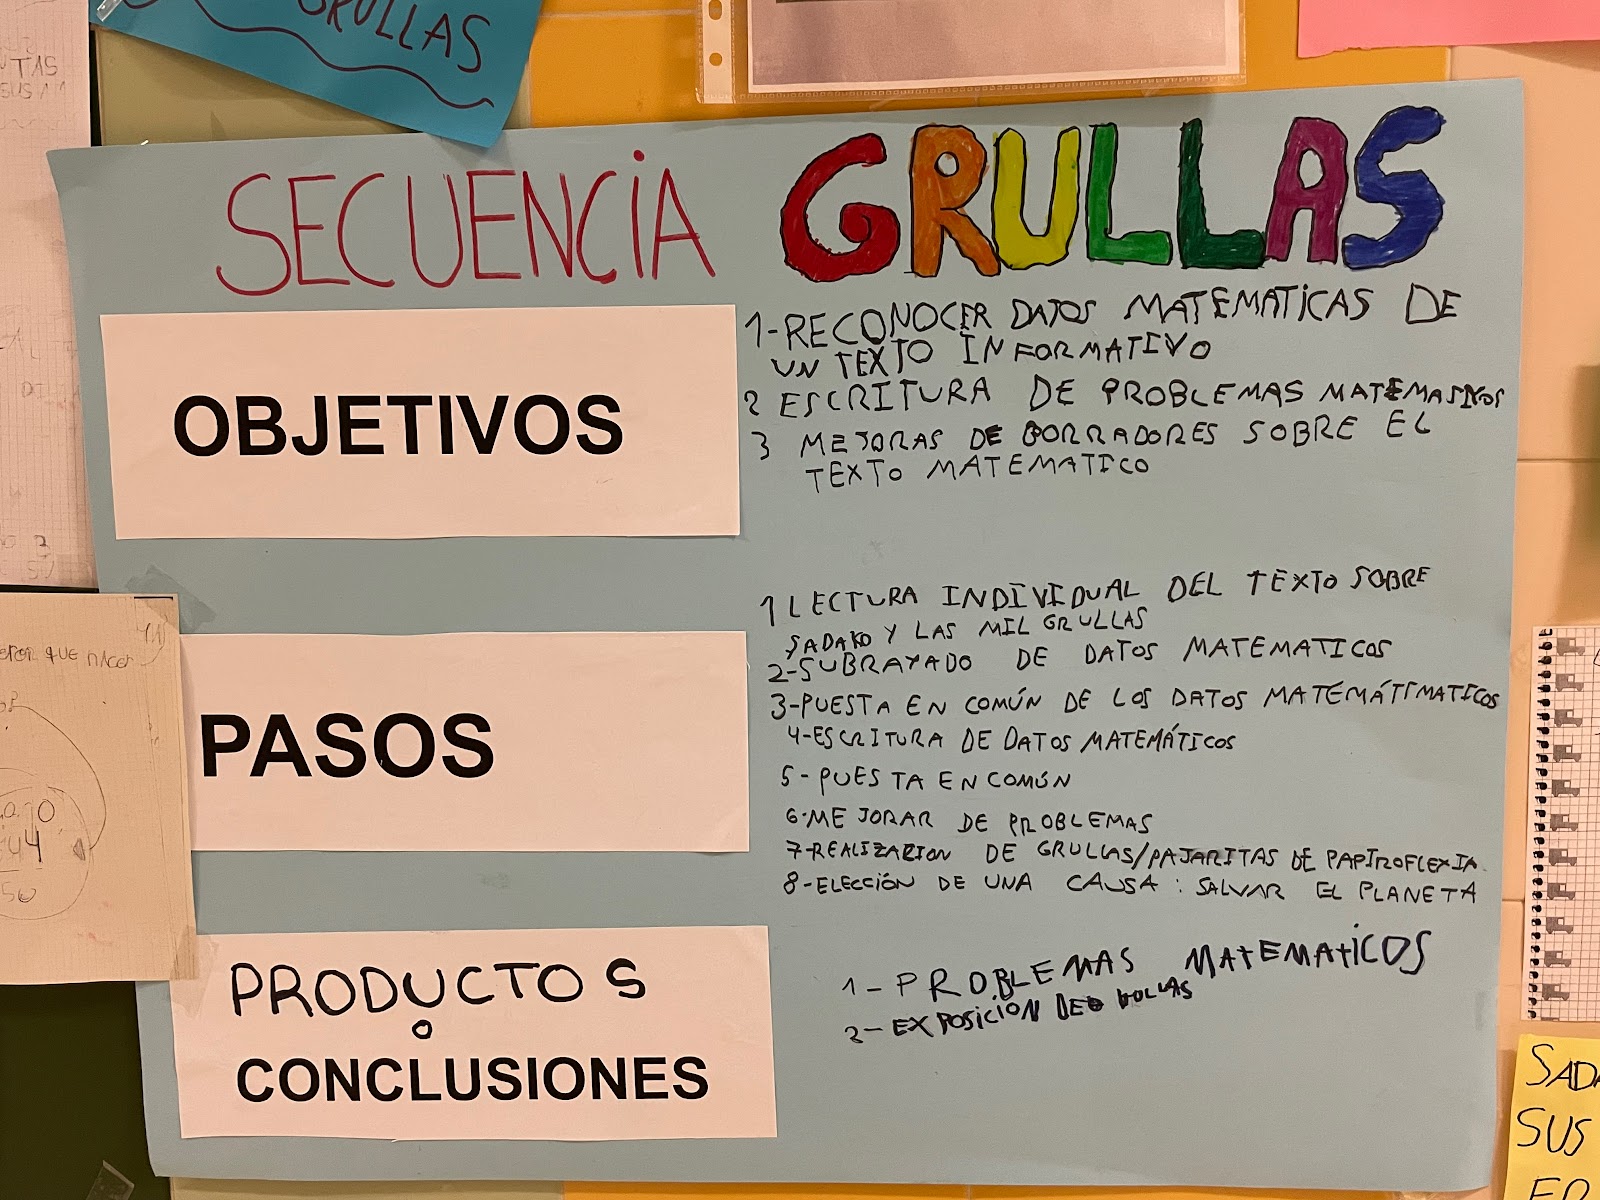 GRULLAS
SECUENCIA GRULLAS
OBJETIVOS
1-RECONOCER DATOS MATEMATICAS DE
UN TEXTO INFORMATIVO
2 ESCRITURA DE PROBLEMAS MATEMASIVOS
3 MEJORAS DE BORRADORES SOBRE EL
TEXTO MATEMATICO
PASOS
1 LECTURA INDIVIDUAL DEL TEXTO SOBRE
SADAKO Y LAS MIL GRULLAS
2-SUBRAYADO DE DATOS MATEMATICOS
3-PUESTA EN COMÚN DE LOS DATOS MATEMÁTIMATICOS
4-ESCRITURA DE DATOS MATEMÁTICOS
5-PUESTA EN COMÚN
6-MEJORAR DE PROBLEMAS
7-REALIZACION DE GRULLAS/PAJARITAS DE PAPIROFLEXIA.
8-ELECCIÓN DE UNA CAUSA: SALVAR EL PLANETA
PRODUCTOS
O
CONCLUSIONES
1-PROBLEMAS MATEMATICOS
2-EXPOSICIÓN DE
SUS